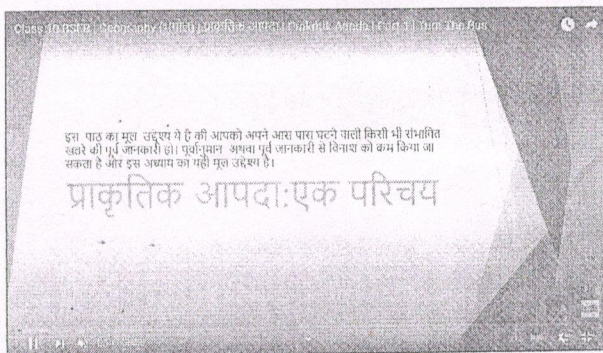 Class 10 | Geography (भूगोल) | प्राकृतिक आपदा | Prakritik Aapda | Part 1 | Turn The Bus
इस पाठ का मूल उद्देश्य ये है की आपको अपने आस पास घटने वाली किसी भी संभावित
खतरे की पूर्व जानकारी हो। पूर्वानुमान अथवा पूर्व जानकारी से विनाश को कम किया जा
सकता है और इस अध्याय का यही मूल उद्देश्य है।
प्राकृतिक आपदा:एक परिचय